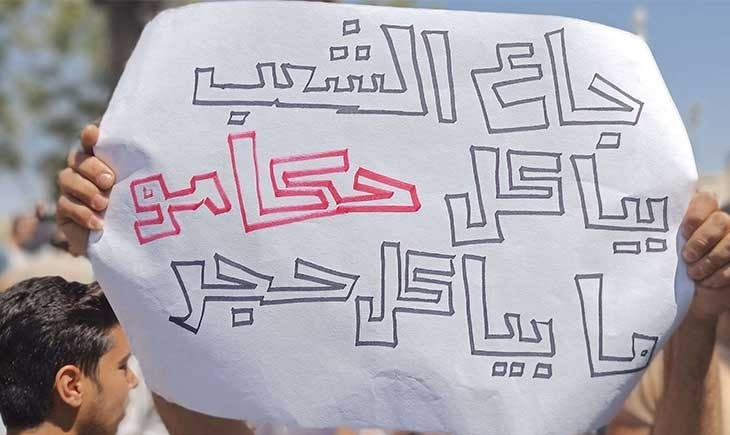 جاع الشعب
بياكل حكامو
ما بياكل حجر